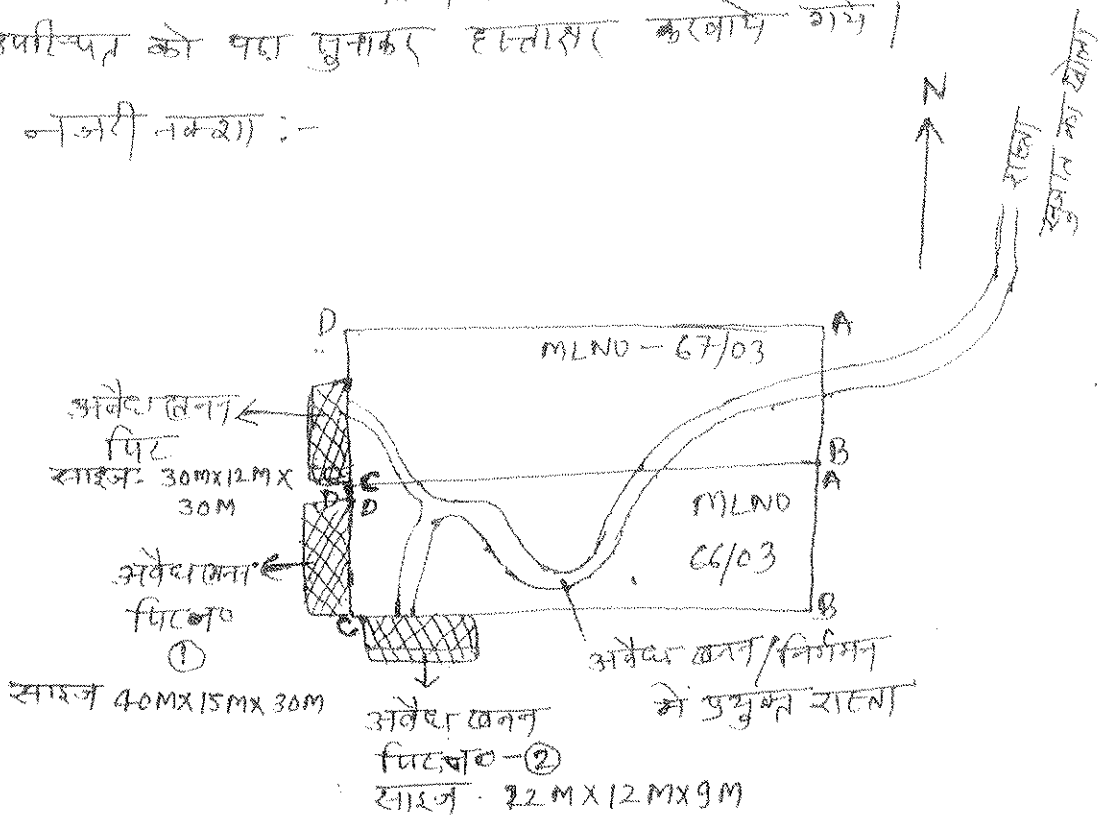 उपस्थित को पढ़ा सुनाकर हस्ताक्षर करवाये गये।
नजरी नक्शा :-
N
रास्ता
D
A
MLNO - 67/03
अवैध खनन
पिट
साइज - 30M X 12M X
30M
C
D
D
B
A
MLNO
66/03
अवैध खनन
पिट नं०
①
साइज 40M X 15M X 30M
C
B
अवैध खनन/निर्गमन
में प्रयुक्त रास्ता
अवैध खनन
पिट नं० - ②
साइज - 22M X 12M X 9M